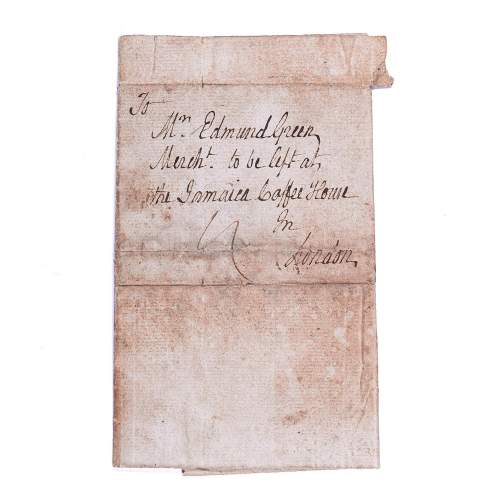 To
Mr. Edmund Green,
Mercht. to be left at,
the Jamaica Coffee House
In
London,